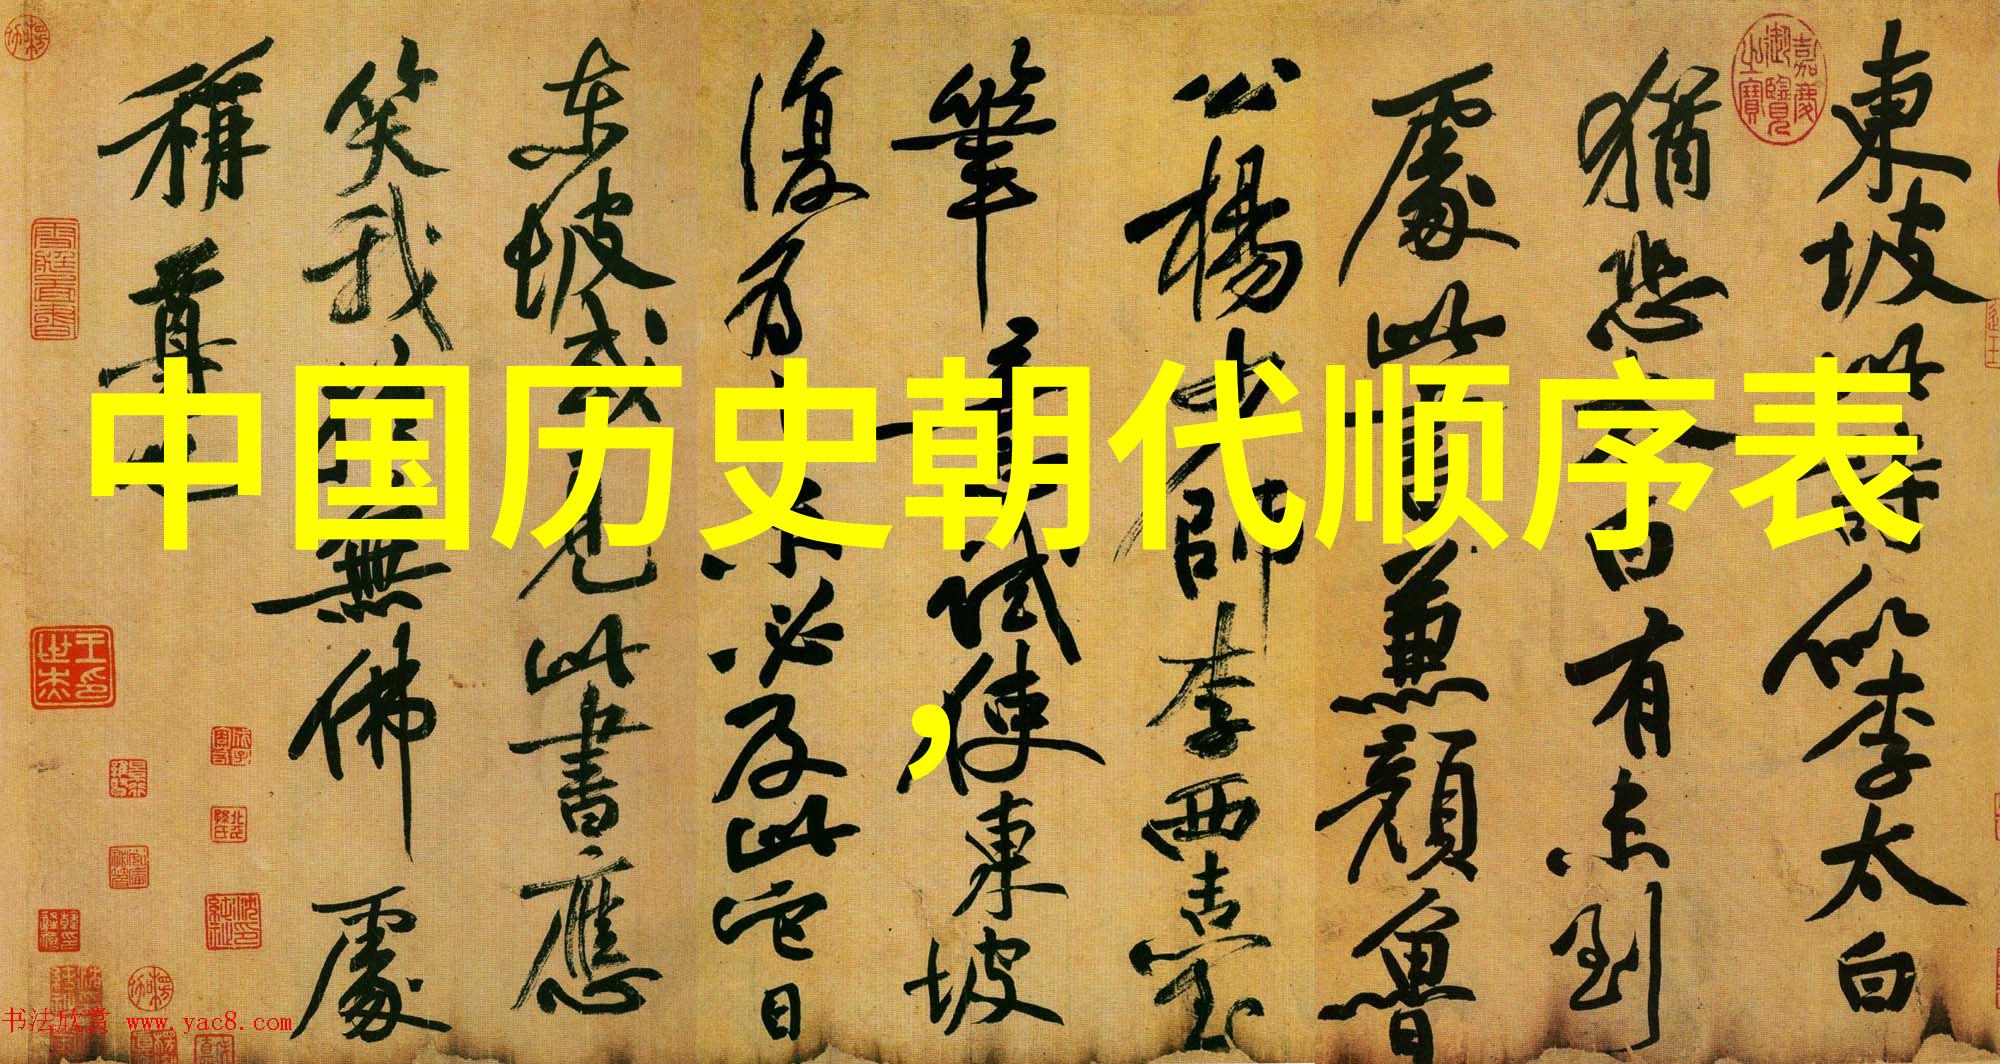 中国历史朝代顺序表
,
東坡此詩似李太白
猶恐太白有未到
處此書兼顏魯
公楊少師李西臺
筆意試使東坡
復為之未必及此它日
東坡或見此書應
笑我於無佛處
稱尊也
嘉慶御覽之寶
书法欣赏 www.yac8.com